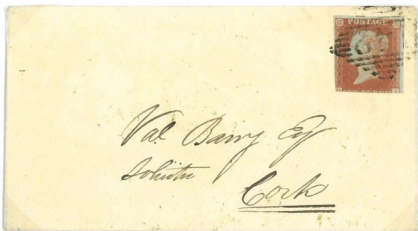 POSTAGE
Val. Barry Esq
Solicitor
Cork